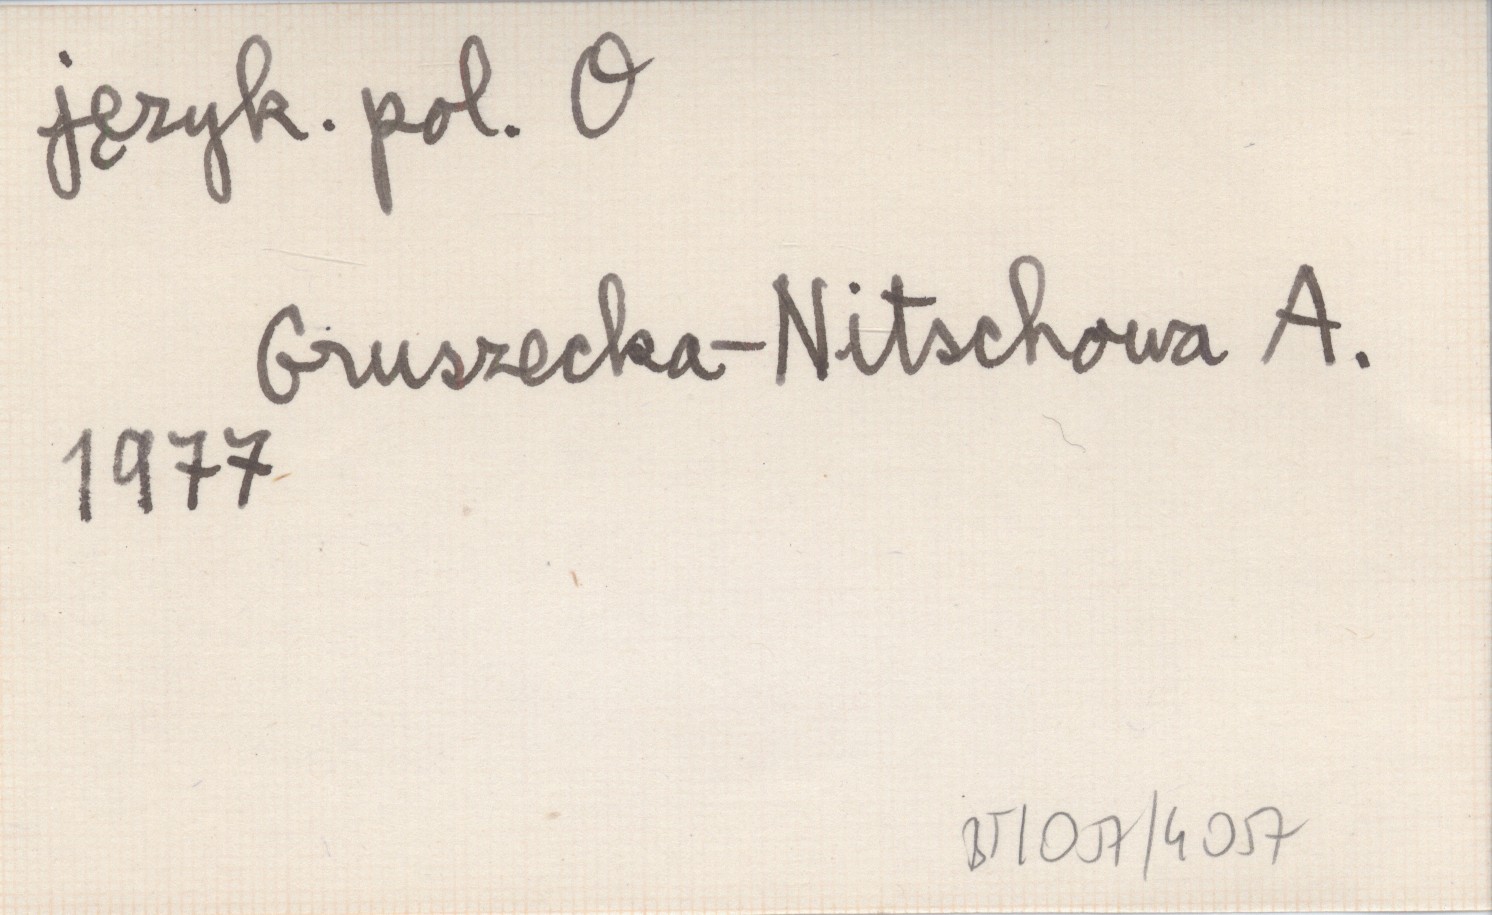 język. pol. O
Gruszecka-Nitschowa A.
1977
BT/057/4057